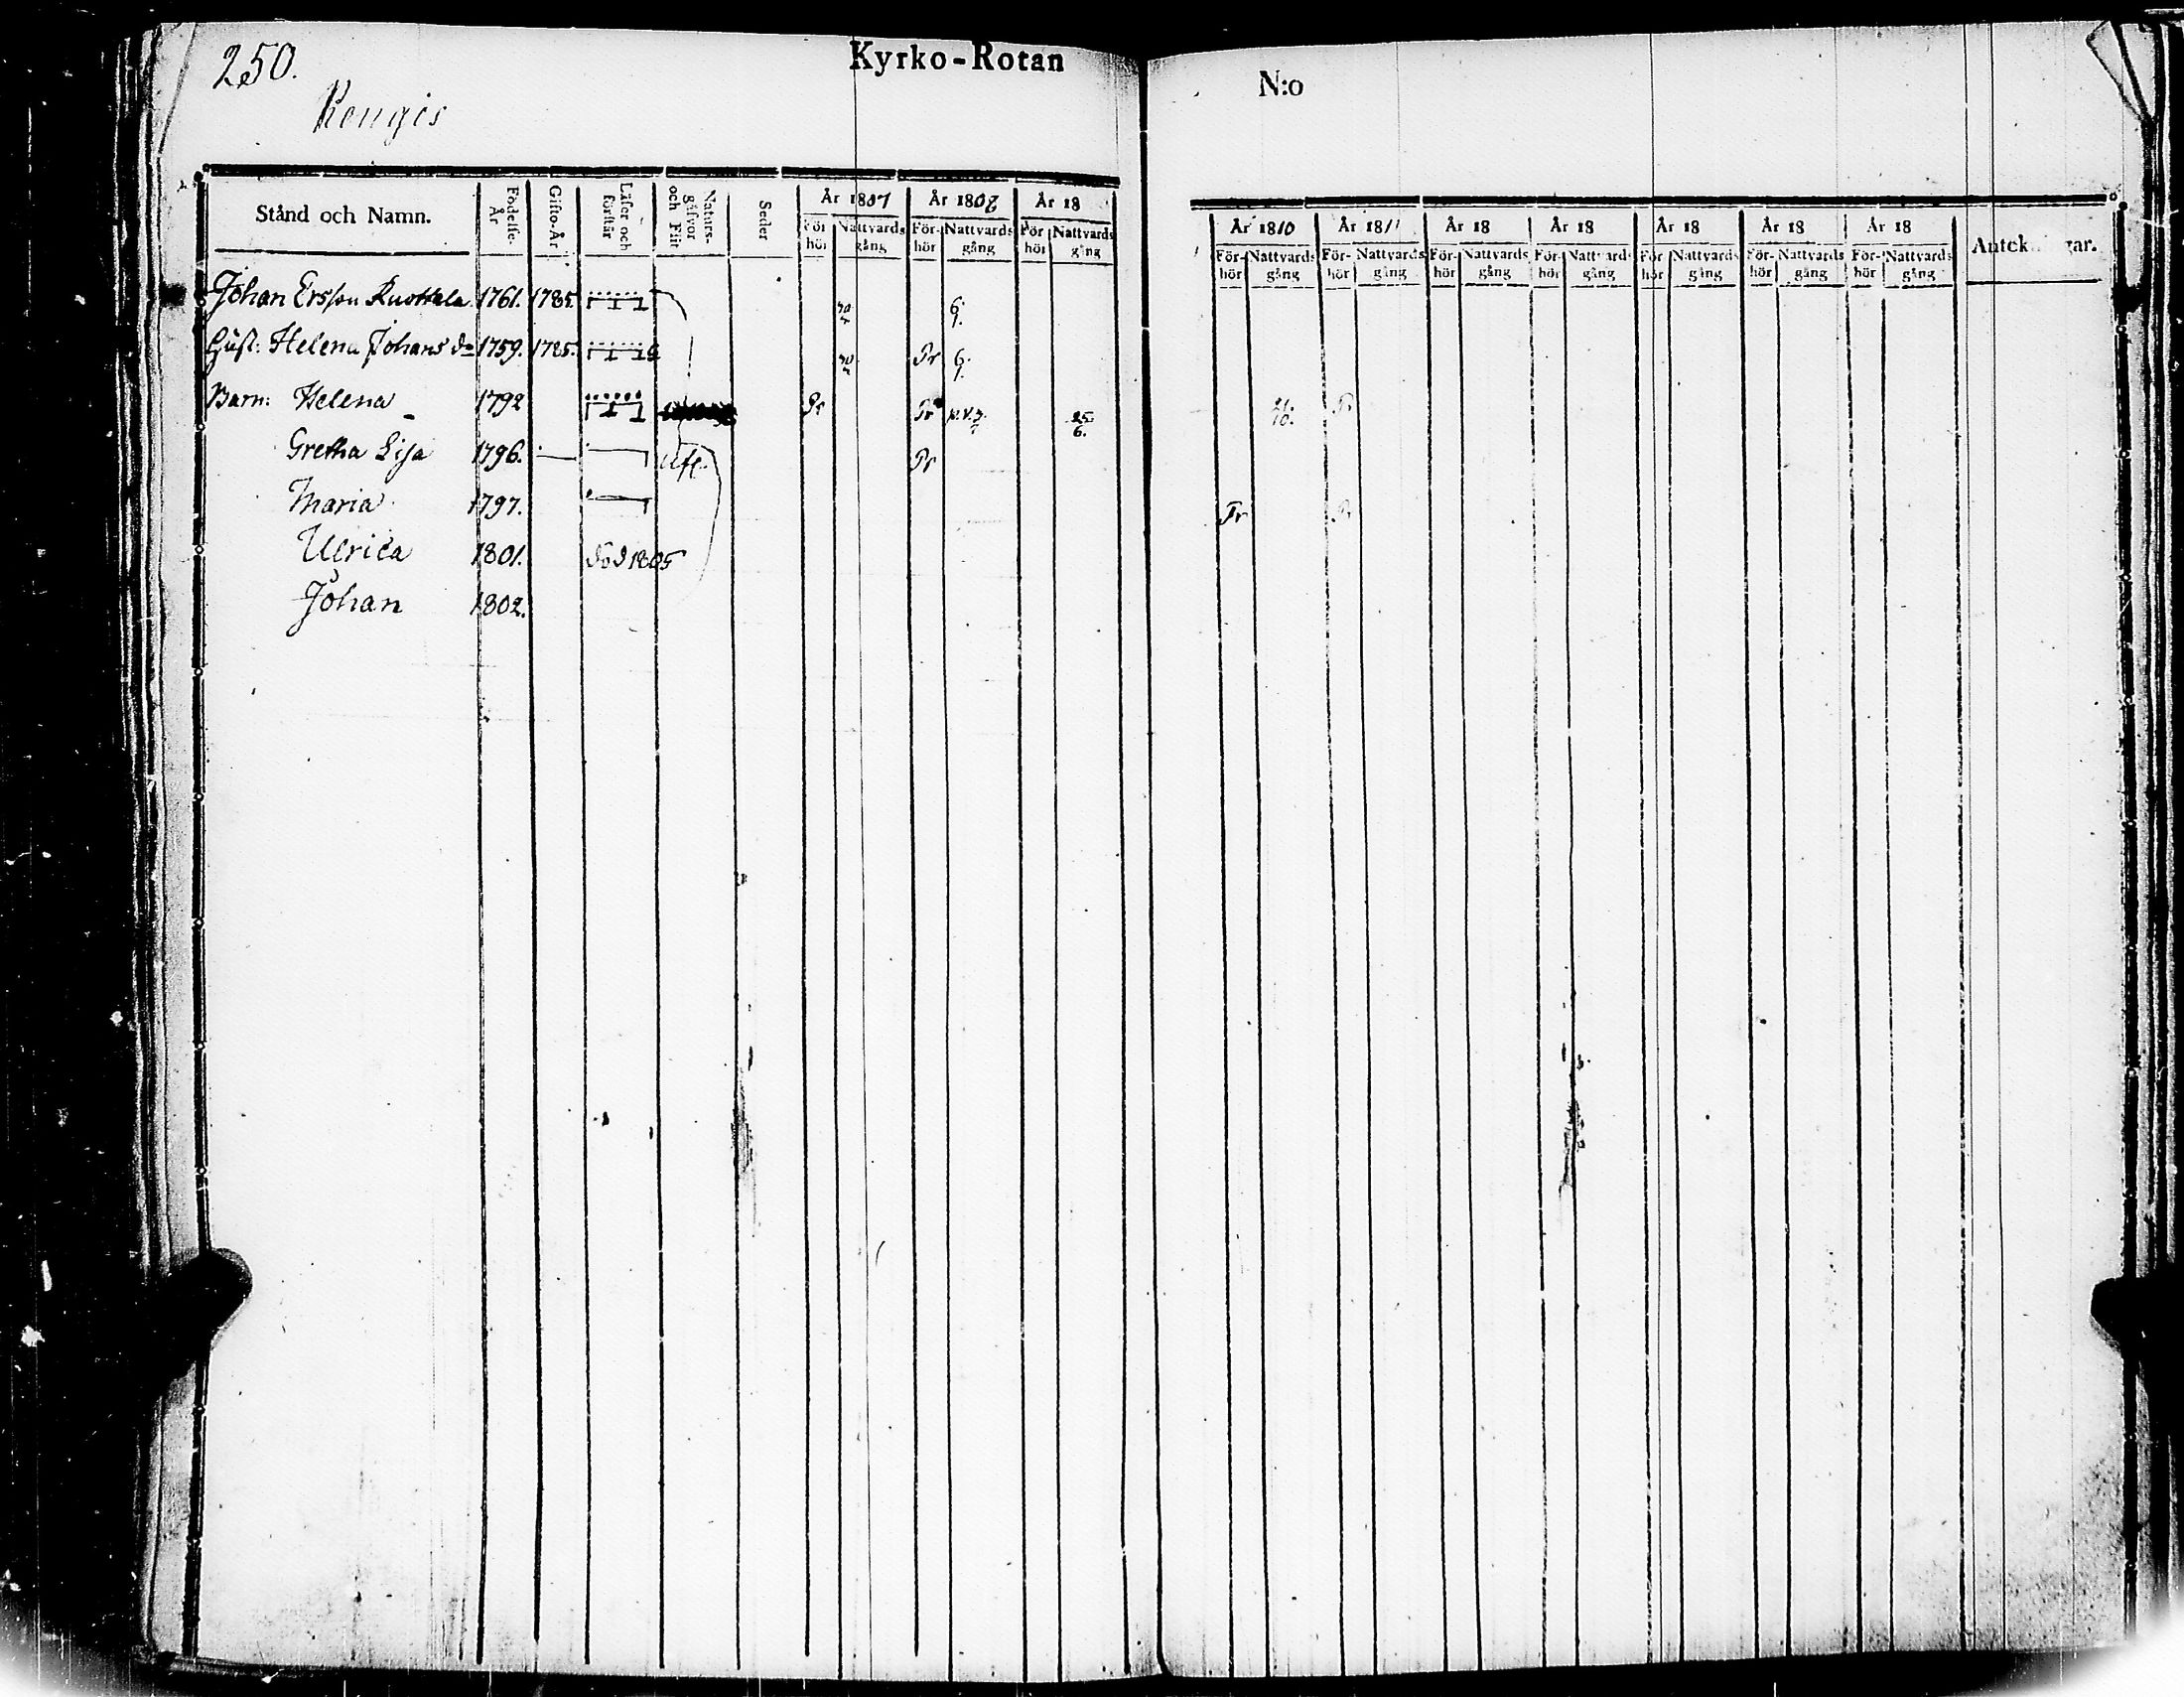 250.
Kyrko-Rotan
N:o
Kengis
Stånd och Namn. Födelse-År Gifto-År Läser och förstår Naturs-gåfvor och Flit Seder År 1807 År 1808 År 18 År 1810 År 1811 År 18 År 18 År 18 År 18 År 18 Anteckningar.
För-hör Nattvards gång För-hör Nattvards gång För-hör Nattvards gång För-hör Nattvards gång För-hör Nattvards gång För-hör Nattvards gång För-hör Nattvards gång För-hör Nattvards gång För-hör Nattvards gång För-hör Nattvards gång
Johan Ersson Ruottala 1761. 1785. 6/1.
Hust: Helena Johans dr 1759. 1785. Pr 6/1.
Barn: Helena 1792 Pr Pr 25/6. Pr
Gretha Lisa 1796. Pr
Maria 1797. Pr Pr
Ulrica 1801. död 1805
Johan 1802.